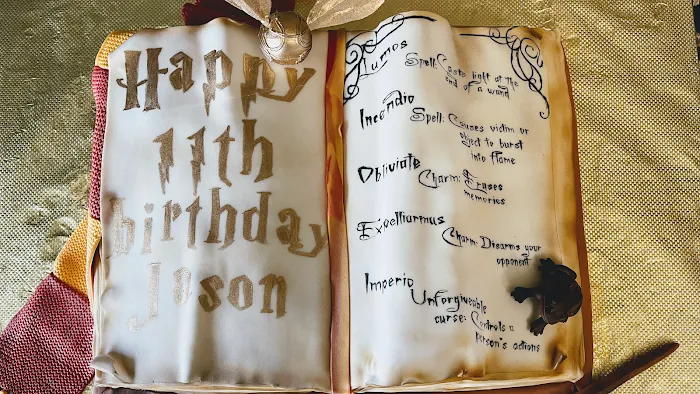 Happy
11th
birthday
Jason
Lumos
Spell: Casts light at the
end of a wand
Incendio
Spell: Causes victim or
object to burst
into flame
Obliviate
Charm: Erases
memories
Expelliurmus
Charm: Disarms your
opponent
Imperio
Unforgivable
curse: Controls a
person's actions